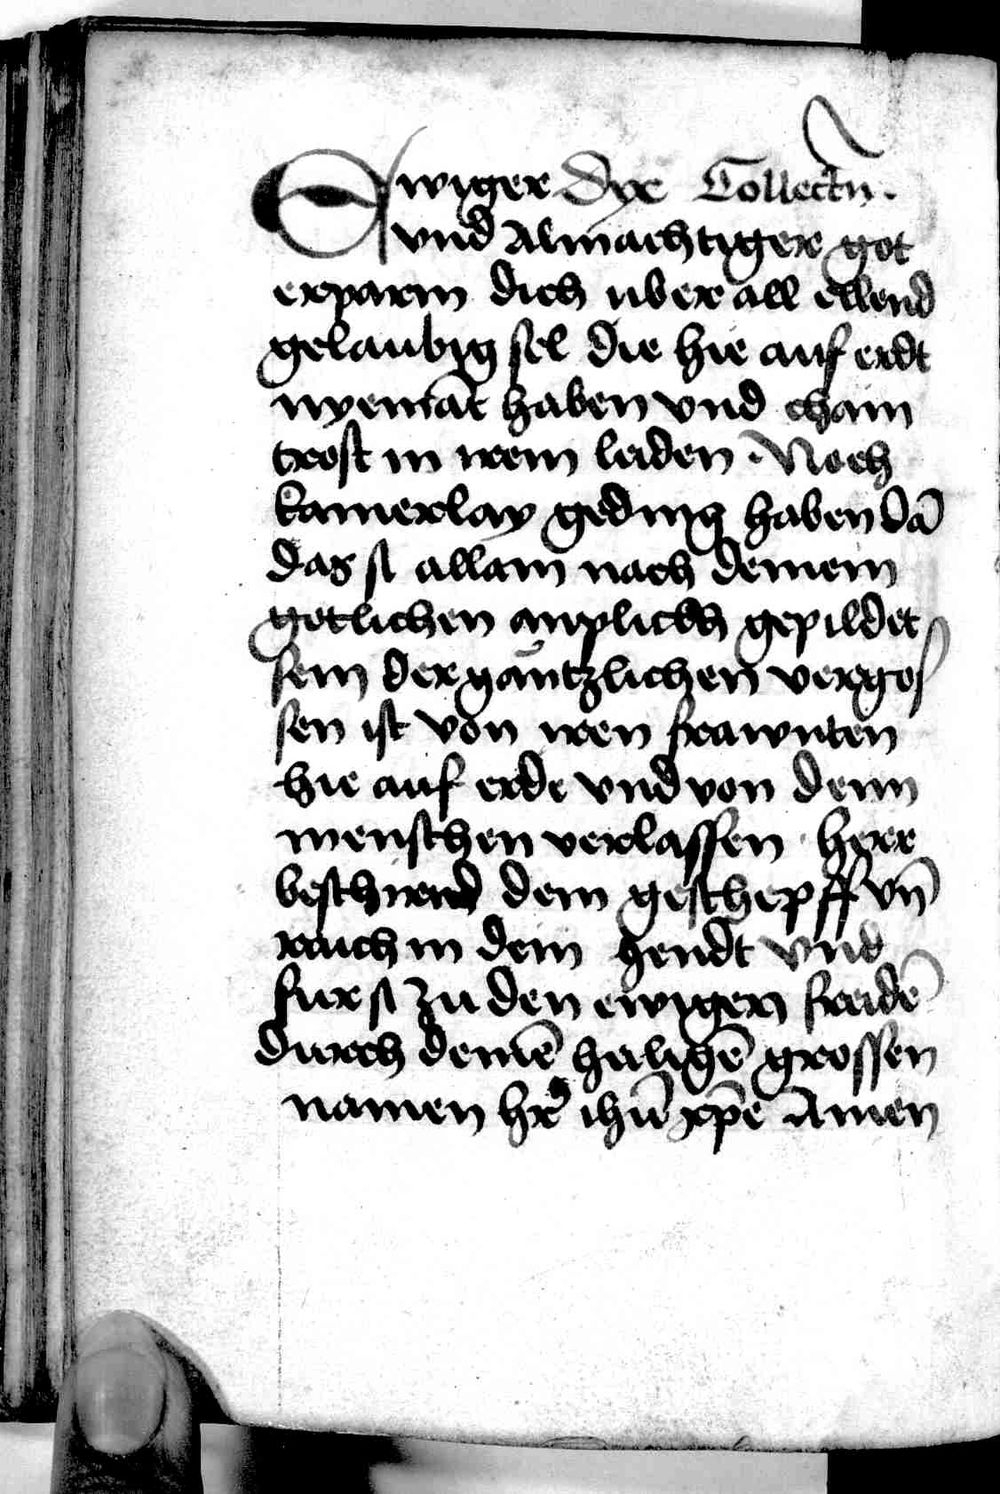 Ewiger Dye Collectn.
vnd Almachtiger got
erparm dich uber all ellend
gelaubig sel die hie auf erdt
nyemāt haben vnd chain
trost in irem leiden Noch
kainerlay geding haben dā
das si allain nach deinem
gotlichen anplickh gepildet
sein der gantzlichen verges
sen ist von iren frawnten
hie auf erde vnd von denn
menschen verlassen herr
beschirm dein geschepff vn̄
raich in dein hendt vnd
fur si zu den ewigen freidē
durch deinē heiligē grossen
namen hr̄ ihū xp̄e Amen